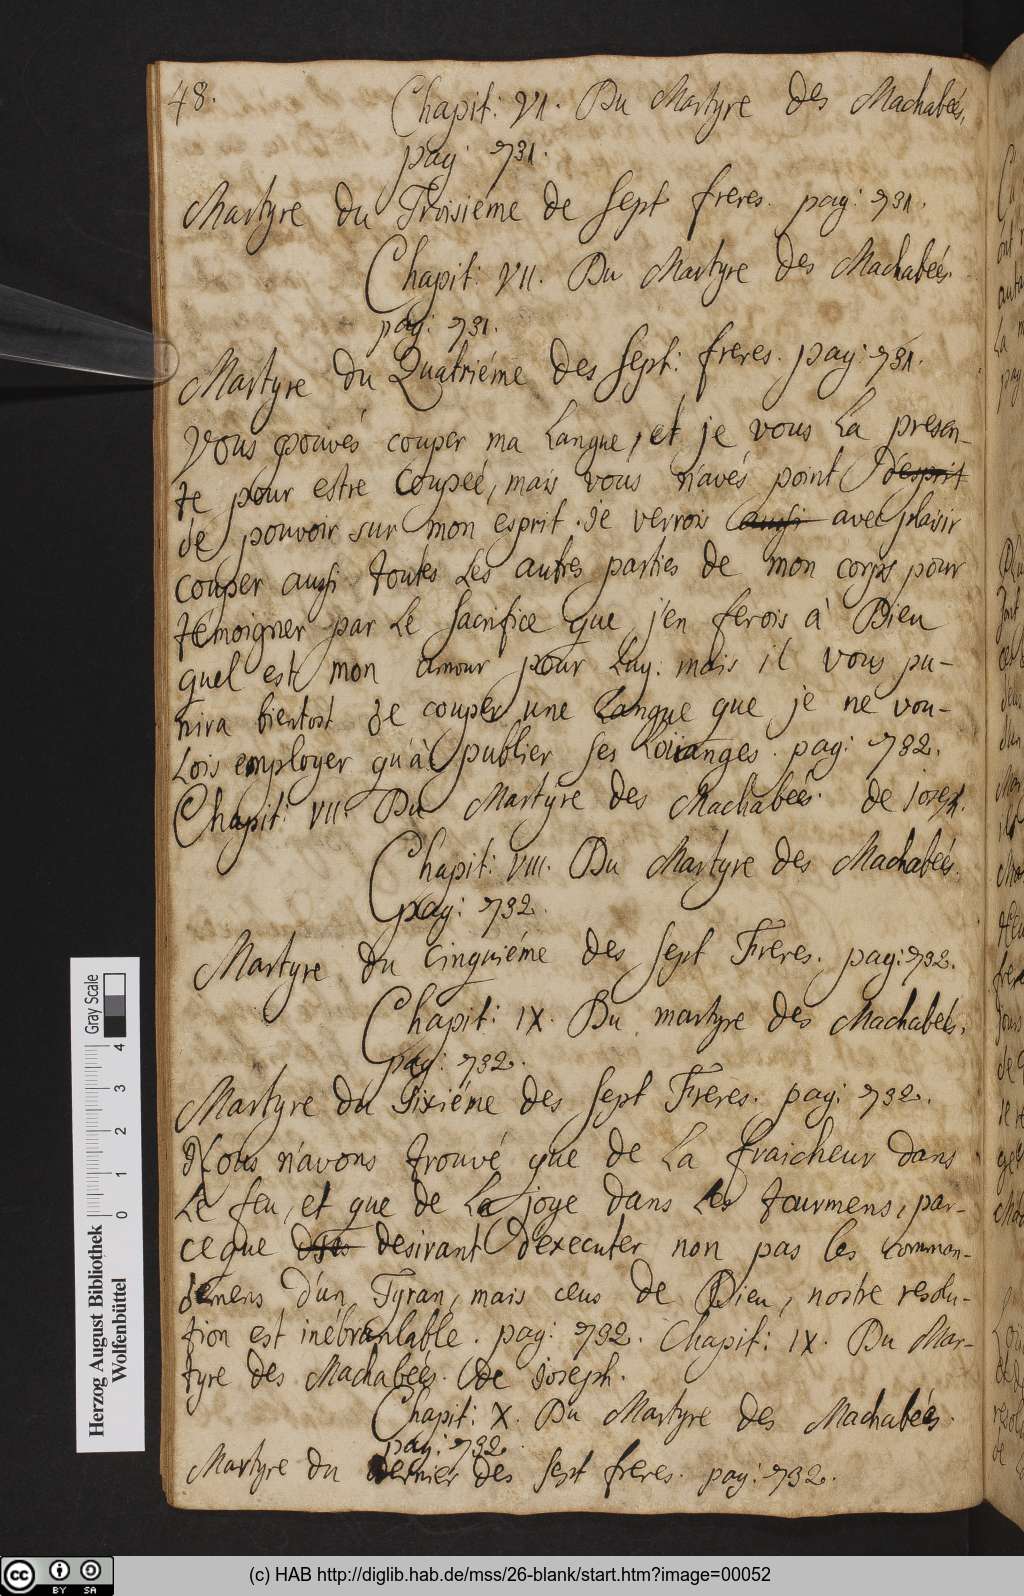 48.
Chapit: VI. Du Martyre des Machabeés.
pag: 731.
Martyre du Troisiéme de sept freres. pag: 731.
Chapit: VII. Du Martyre des Machabeés.
pag: 731.
Martyre du Quatriéme des sept: freres. pag: 731.
Vous pouvés couper ma langue, et je vous la presen-
te pour estre coupeé, mais vous n'avés point d'esprit
de pouvoir sur mon esprit. Je verrois aussi avec plaisir
couper aussi toutes les autres parties de mon corps pour
temoigner par le sacrifice que j'en ferois à Dieu
quel est mon amour pour luy. mais il vous pu-
nira bientost de couper une Langue que je ne vou-
lois employer qu'à publier ses Loüanges. pag: 732.
Chapit: VII. Du Martyre des Machabeés. de Joseph.
Chapit: VIII. Du Martyre des Machabeés.
pag: 732.
Martyre du cinquiéme des sept Freres. pag: 732.
Chapit: IX. Du martyre des Machabeés.
pag: 732.
Martyre du Sixiéme des sept Freres. pag: 732.
Nous n'avons trouvé que de la fraicheur dans
le feu, et que de la joye dans les tourmens, par-
ceque desirant d'executer non pas les comman-
demens d'un Tyran, mais ceus de Dieu, nostre resolu-
tion est inébranlable. pag: 732. Chapit: IX. Du Mar-
tyre des Machabeés. de Joseph.
Chapit: X. Du Martyre des Machabeés.
pag: 732.
Martyre du dernier des sept freres. pag: 732.
Herzog August Bibliothek
Wolfenbüttel
0 1 2 3 4
Gray Scale
CC BY SA
(c) HAB http://diglib.hab.de/mss/26-blank/start.htm?image=00052